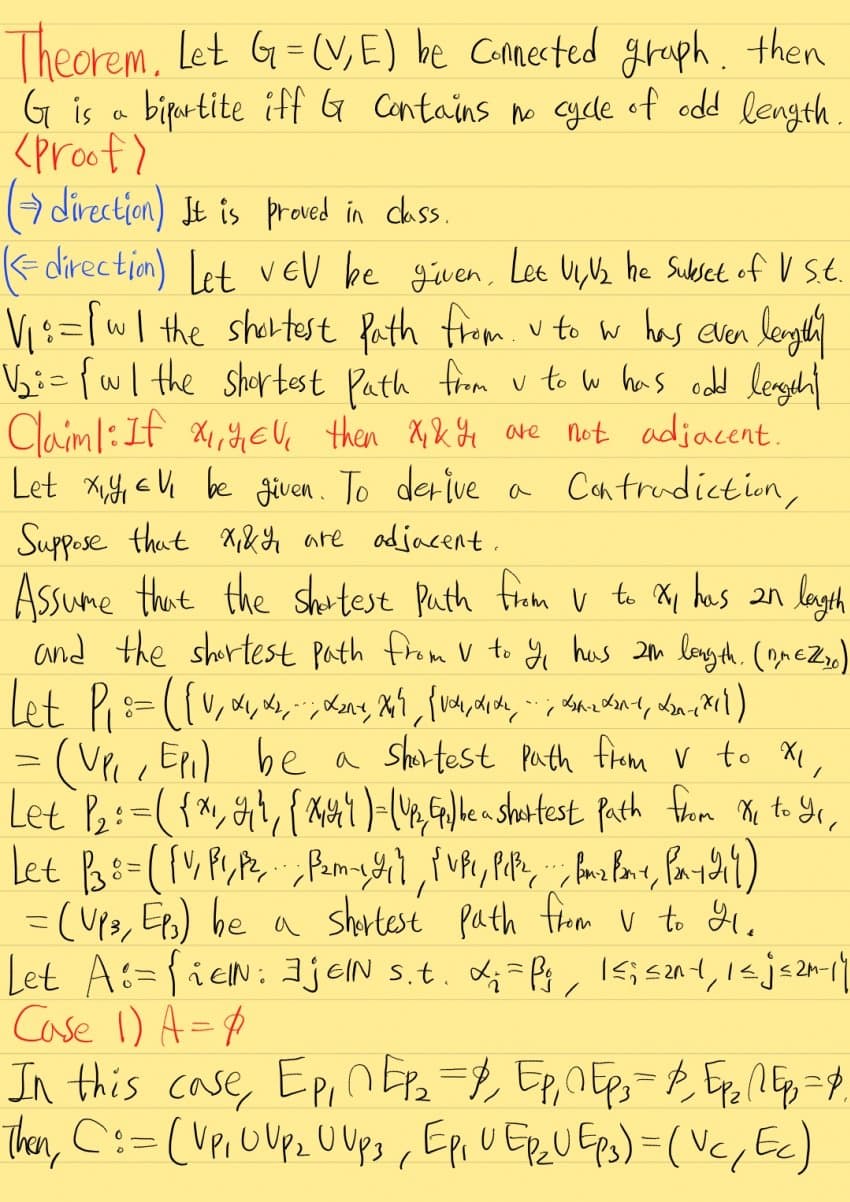 Theorem. Let G = (V, E) be connected graph. then
G is a bipartite iff G contains no cycle of odd length.
<proof>
(⇒ direction) It is proved in class.
(<= direction) Let v ∈ V be given. Let V₁, V₂ be subset of V s.t.
V₁ := {w | the shortest path from v to w has even length}
V₂ := {w | the shortest path from v to w has odd length}
Claim1: If x₁, y₁ ∈ V₁ then x₁ & y₁ are not adjacent.
Let x₁, y₁ ∈ V₁ be given. To derive a contradiction,
Suppose that x₁ & y₁ are adjacent.
Assume that the shortest path from v to x₁ has 2n length
and the shortest path from v to y₁ has 2m length. (n, m ∈ ℤ≥0)
Let P₁ := ({v, α₁, α₂, ..., α2n-1, x₁}, {vα₁, α₁α₂, ..., α2n-2α2n-1, α2n-1x₁})
= (VP₁, EP₁) be a shortest path from v to x₁,
Let P₂ := ({x₁, y₁}, {x₁y₁}) = (VP₂, EP₂) be a shortest path from x₁ to y₁,
Let P₃ := ({v, β₁, β₂, ..., β2m-1, y₁}, {vβ₁, β₁β₂, ..., βm-2 βm-1, β2m-1 y₁})
= (VP₃, EP₃) be a shortest path from v to y₁.
Let A := {i ∈ ℕ : ∃j ∈ ℕ s.t. αi = βj, 1 ≤ i ≤ 2n-1, 1 ≤ j ≤ 2m-1}
Case 1) A = ∅
In this case, EP₁ ∩ EP₂ = ∅, EP₁ ∩ EP₃ = ∅, EP₂ ∩ EP₃ = ∅.
Then, C := (VP₁ ∪ VP₂ ∪ VP₃, EP₁ ∪ EP₂ ∪ EP₃) = (VC, EC)